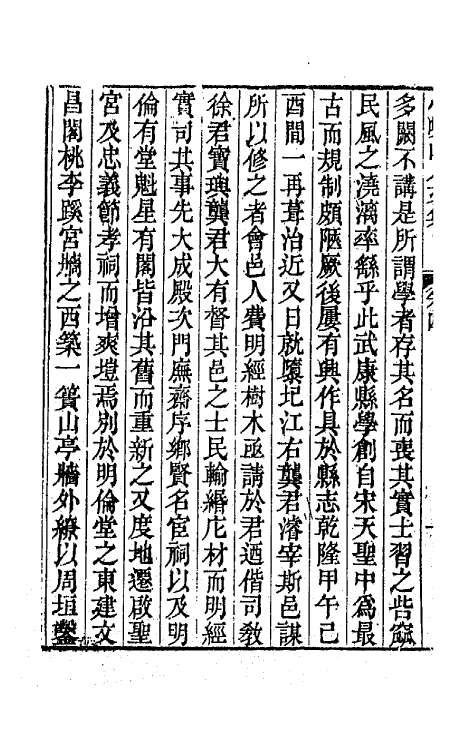 多闕不講是所謂學者存其名而喪其實士習之呰窳
民風之澆漓率繇乎此武康縣學創自宋天聖中爲最
古而規制頗陋厥後屢有興作具於縣志乾隆甲午己
酉間一再葺治近又日就隳圮江右龔君濬宰斯邑謀
所以修之者會邑人費明經樹木亟請於君迺偕司敎
徐君寳璵龔君大有督其邑之士民輸緡庀材而明經
實司其事先大成殿次門廡齋序鄉賢名宦祠以及明
倫有堂魁星有閣皆沿其舊而重新之又度地遷啟聖
宮及忠義節孝祠而增爽塏焉别於明倫堂之東建文
昌閣桃李蹊宮牆之西築一簣山亭牆外繚以周垣鑿